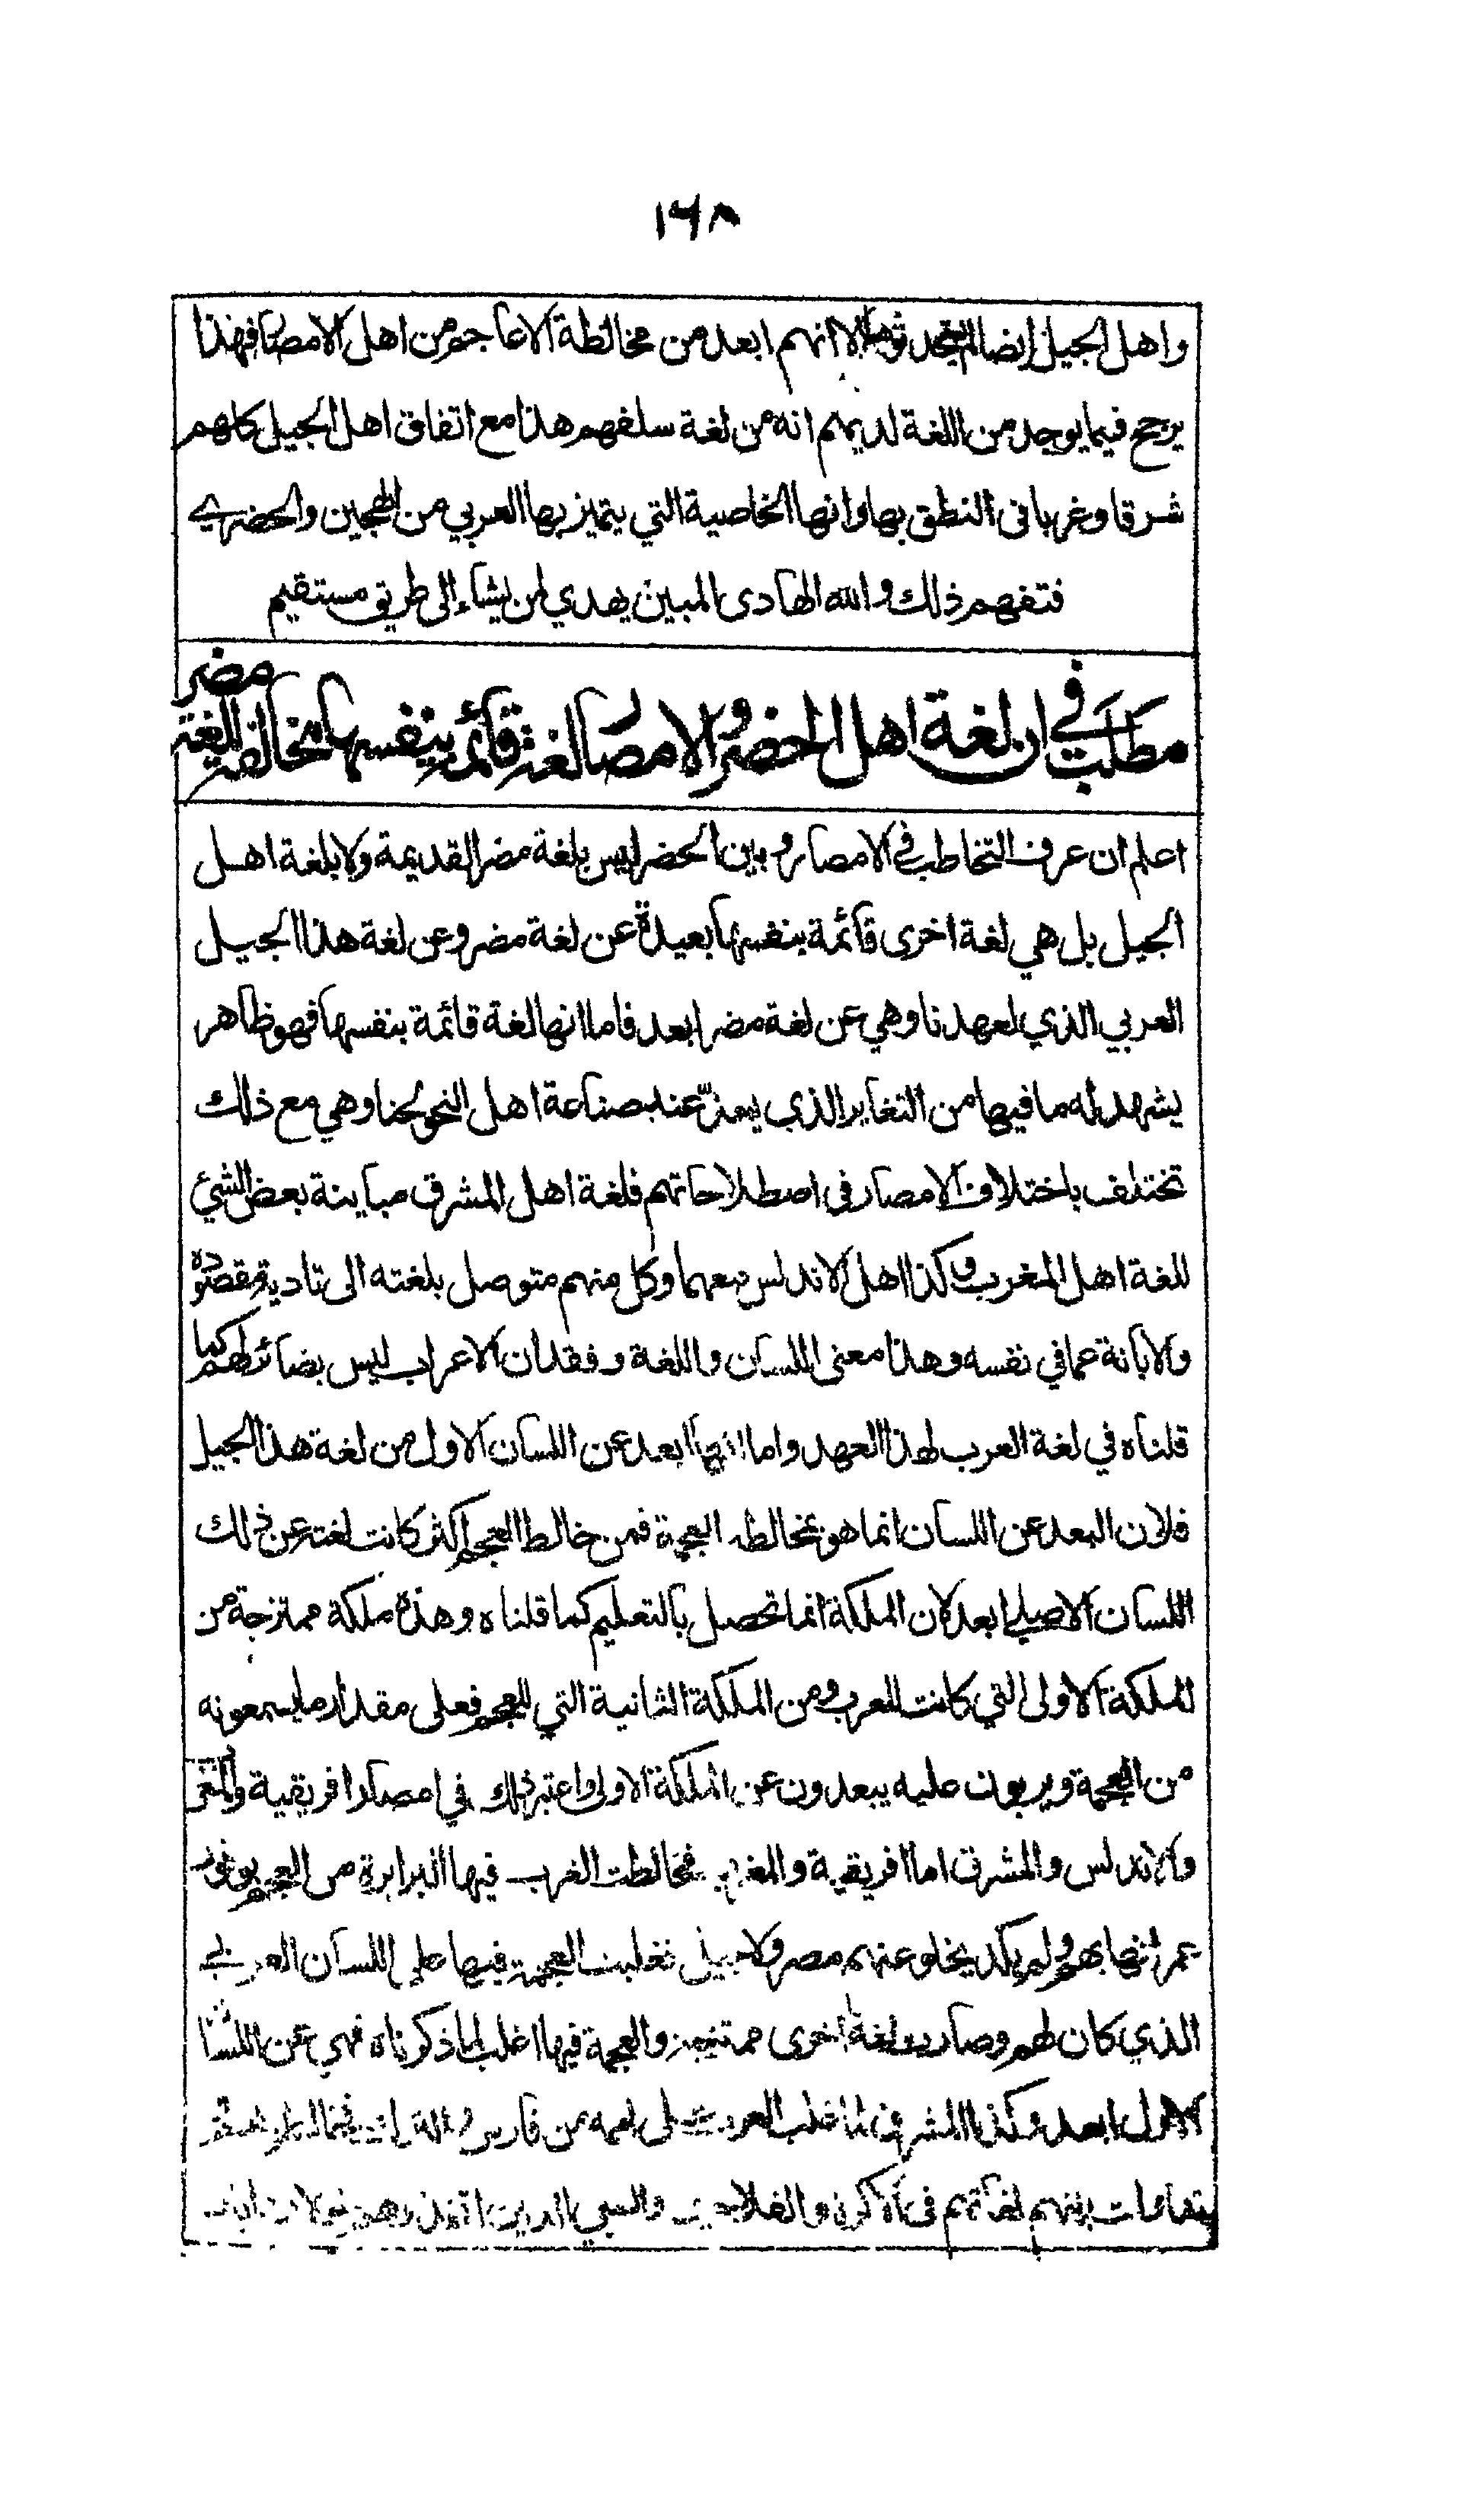 ١٦٨
واهل الجيل ايضا لم يحدثوها الا انهم ابعد من مخالطة الاعاجم من اهل الامصار فهذا
يرجح فيما يوجد من اللغة لديهم انه من لغة سلفهم هذا مع اتفاق اهل الجيل كلهم
شرقا وغربا فى النطق بها وانها الخاصية التي يتميز بها العربي من الهجين والحضري
فتفهم ذلك والله الهادى المبين يهدي لمن يشاء الى طريق مستقيم
مطلب في ان لغة اهل الحضر والامصار لغة قائمة بنفسها مخالفة للغة مضر
اعلم ان عرف التخاطب في الامصار وبين الحضر ليس بلغة مضر القديمة ولا بلغة اهل
الجيل بل هي لغة اخرى قائمة بنفسها بعيدة عن لغة مضر وعن لغة هذا الجيل
العربي الذي لعهدنا وهي عن لغة مضر ابعد فاما انها لغة قائمة بنفسها فهو ظاهر
يشهد له ما فيها من التغاير الذي يعدّ عند صناعة اهل النحو لحنا وهي مع ذلك
تختلف باختلاف الامصار في اصطلاحاتهم فلغة اهل المشرق مباينة بعض الشئ
للغة اهل المغرب وكذا اهل الاندلس معهما وكل منهم متوصل بلغته الى تادية مقصوده
والابانة عما في نفسه وهذا معنى اللسان واللغة وفقدان الاعراب ليس بضائر لهم كما
قلناه في لغة العرب لهذا العهد واما انها ابعد عن اللسان الاول من لغة هذا الجيل
فلان البعد عن اللسان انما هو بمخالطة العجمة فمن خالط العجم اكثر كانت لغته عن ذلك
اللسان الاصلي ابعد لان الملكة انما تحصل بالتعليم كما قلناه وهذه ملكة ممتزجة من
الملكة الاولى التي كانت للعرب ومن الملكة الثانية التي للعجم فعلى مقدار ما يسمعونه
من العجمة ويربون عليه يبعدون عن الملكة الاولى واعتبر ذلك في امصار افريقية والمغرب
والاندلس والمشرق اما افريقية والمغرب فخالطت العرب فيها البرابرة من العجم بوفور
عمرانها بهم ولم يكد يخلو عنهم مصر ولا جيل فغلبت العجمة فيها على اللسان العربي
الذي كان لهم وصارت لغة اخرى ممتزجة والعجمة فيها اغلب لما ذكرناه فهي عن اللسان
الاول ابعد وكذا المشرق لما غلب العرب على اممه من فارس والترك فخالطوهم
وتداولت بينهم لغاتهم فى الاكرة والفلاحين والسبي الذين اتخذوهم خولا